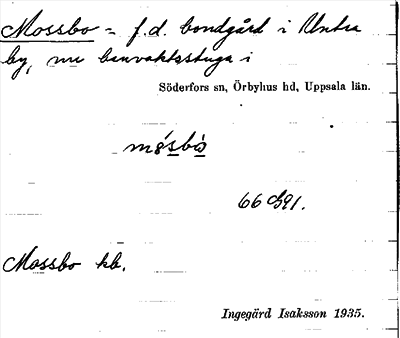 Mossbo = f.d. bondgård i Untra
by, nu banvaktsstuga i
Söderfors sn, Örbyhus hd, Uppsala län.
66 G91.
Mossbo kb.
Ingegärd Isaksson 1935.